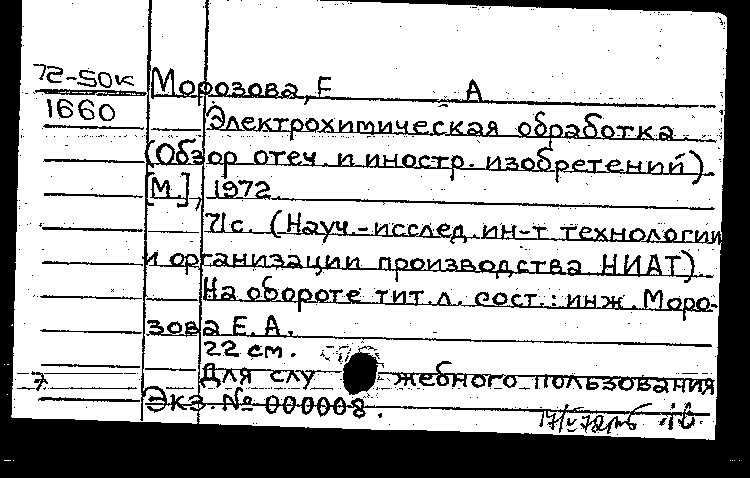 72-50к
1660
Морозова, Е А
Электрохимическая обработка
(Обзор отеч. и иностр. изобретений).
[М.], 1972
71с. (Науч.-исслед. ин-т технологии
и организации производства НИАТ)
На обороте тит. л. сост.: инж. Моро-
зова Е. А.
22 см.
Для слу жебного пользования
7
Экз. № 000008.